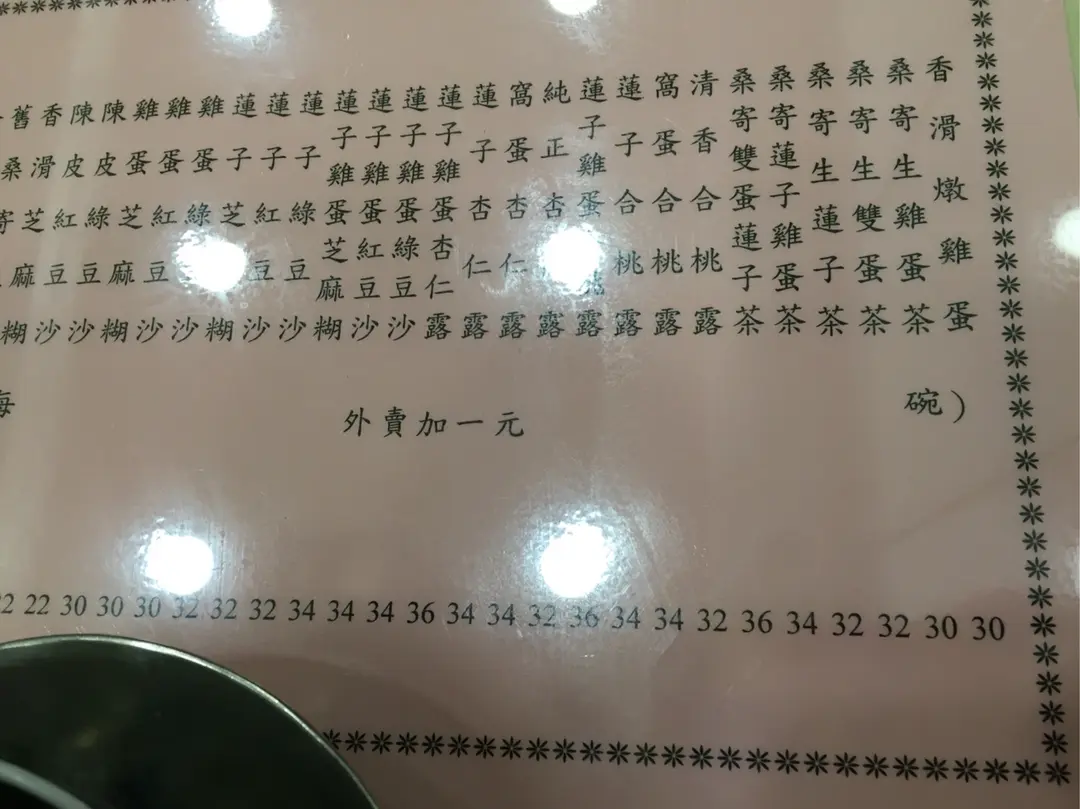 香滑燉雞蛋 30
桑寄生雞蛋茶 30
桑寄生雙蛋茶 32
桑寄生蓮子茶 32
桑寄蓮子雞蛋茶 34
桑寄雙蛋蓮子茶 36
清香合桃露 32
窩蛋合桃露 34
蓮子合桃露 34
蓮子雞蛋桃露 36
純正杏露 32
窩蛋杏仁露 34
蓮子杏仁露 34
蓮子雞蛋杏仁露 36
蓮子雞蛋綠豆沙 34
蓮子雞蛋紅豆沙 34
蓮子雞蛋芝麻糊 34
蓮子綠豆沙 32
蓮子紅豆沙 32
蓮子芝糊 32
雞蛋綠沙 30
雞蛋紅豆沙 30
雞蛋芝麻糊 30
陳皮綠豆沙 22
陳皮紅豆沙 22
香滑芝麻糊
舊桑寄
碗)
外賣加一元
每